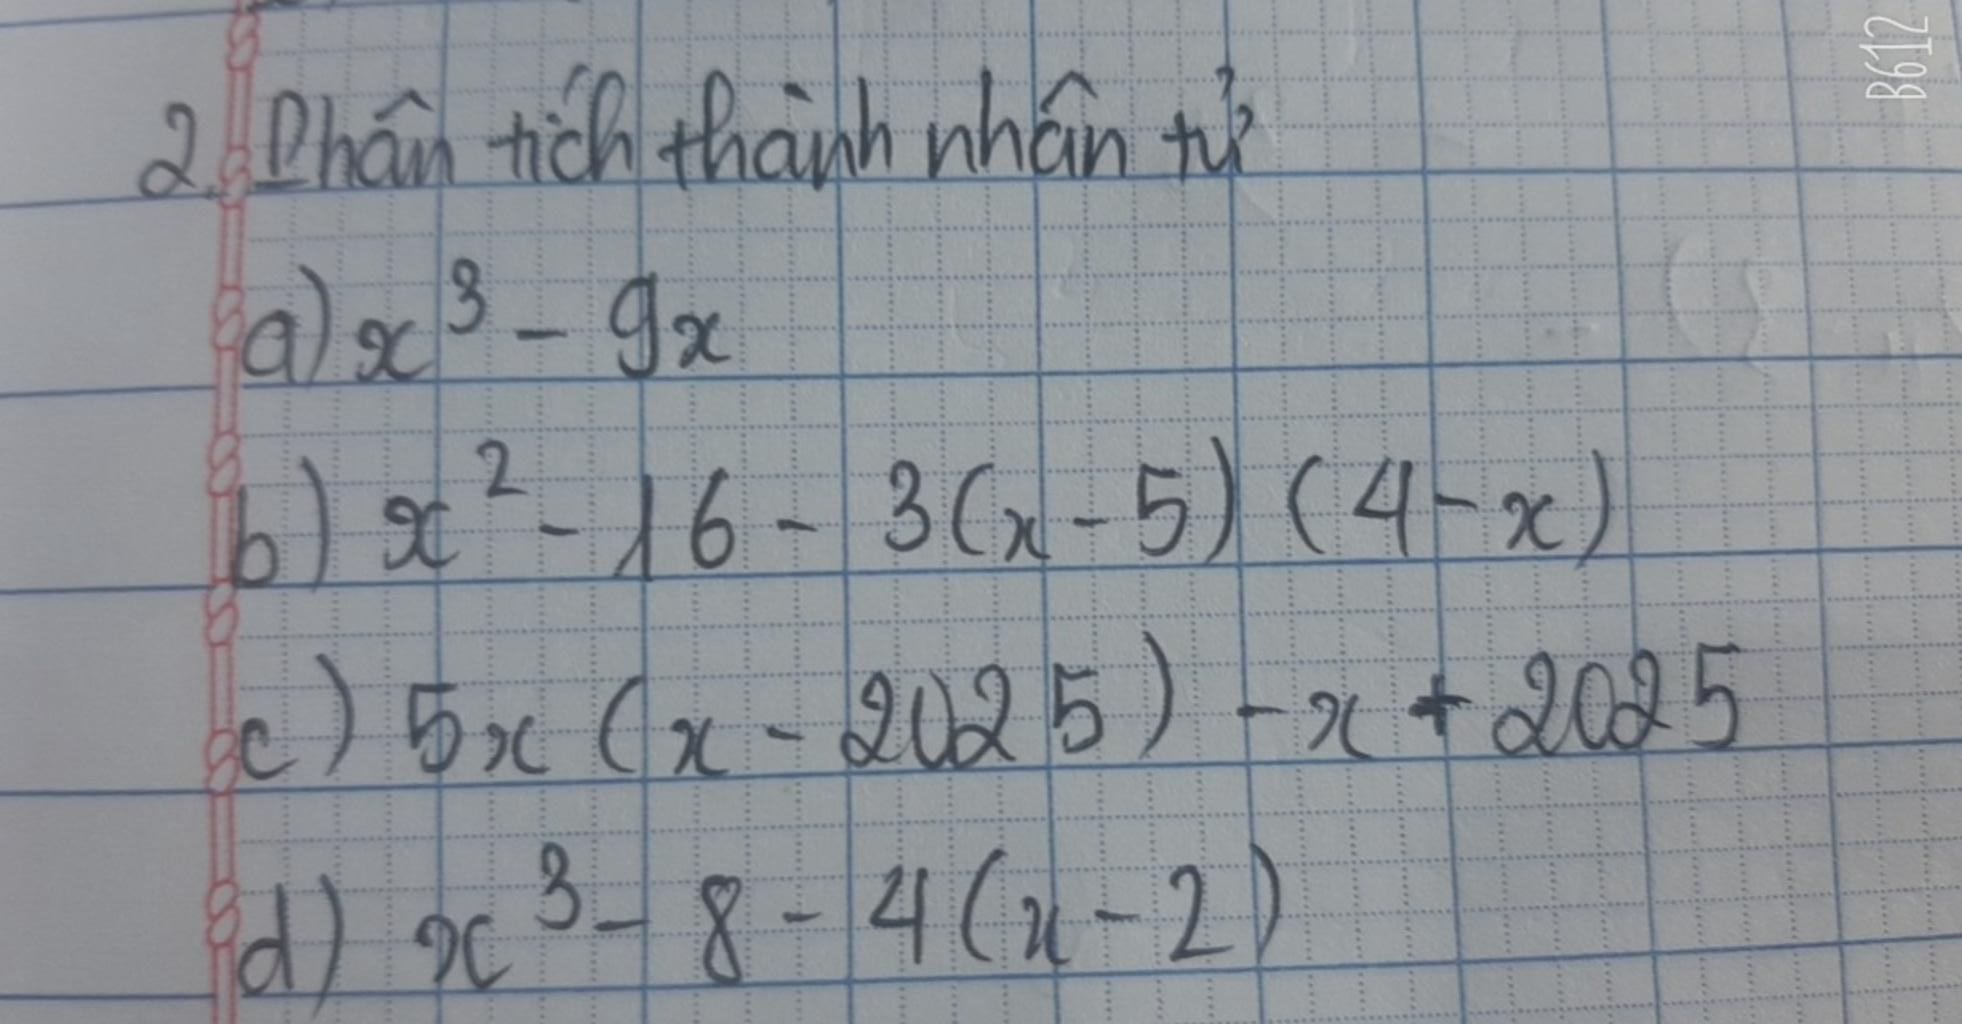 B612
2. Phân tích thành nhân tử
a) x³ - 9x
b) x² - 16 - 3(x - 5) (4 - x)
c) 5x (x - 2025) - x + 2025
d) x³ - 8 - 4(x - 2)